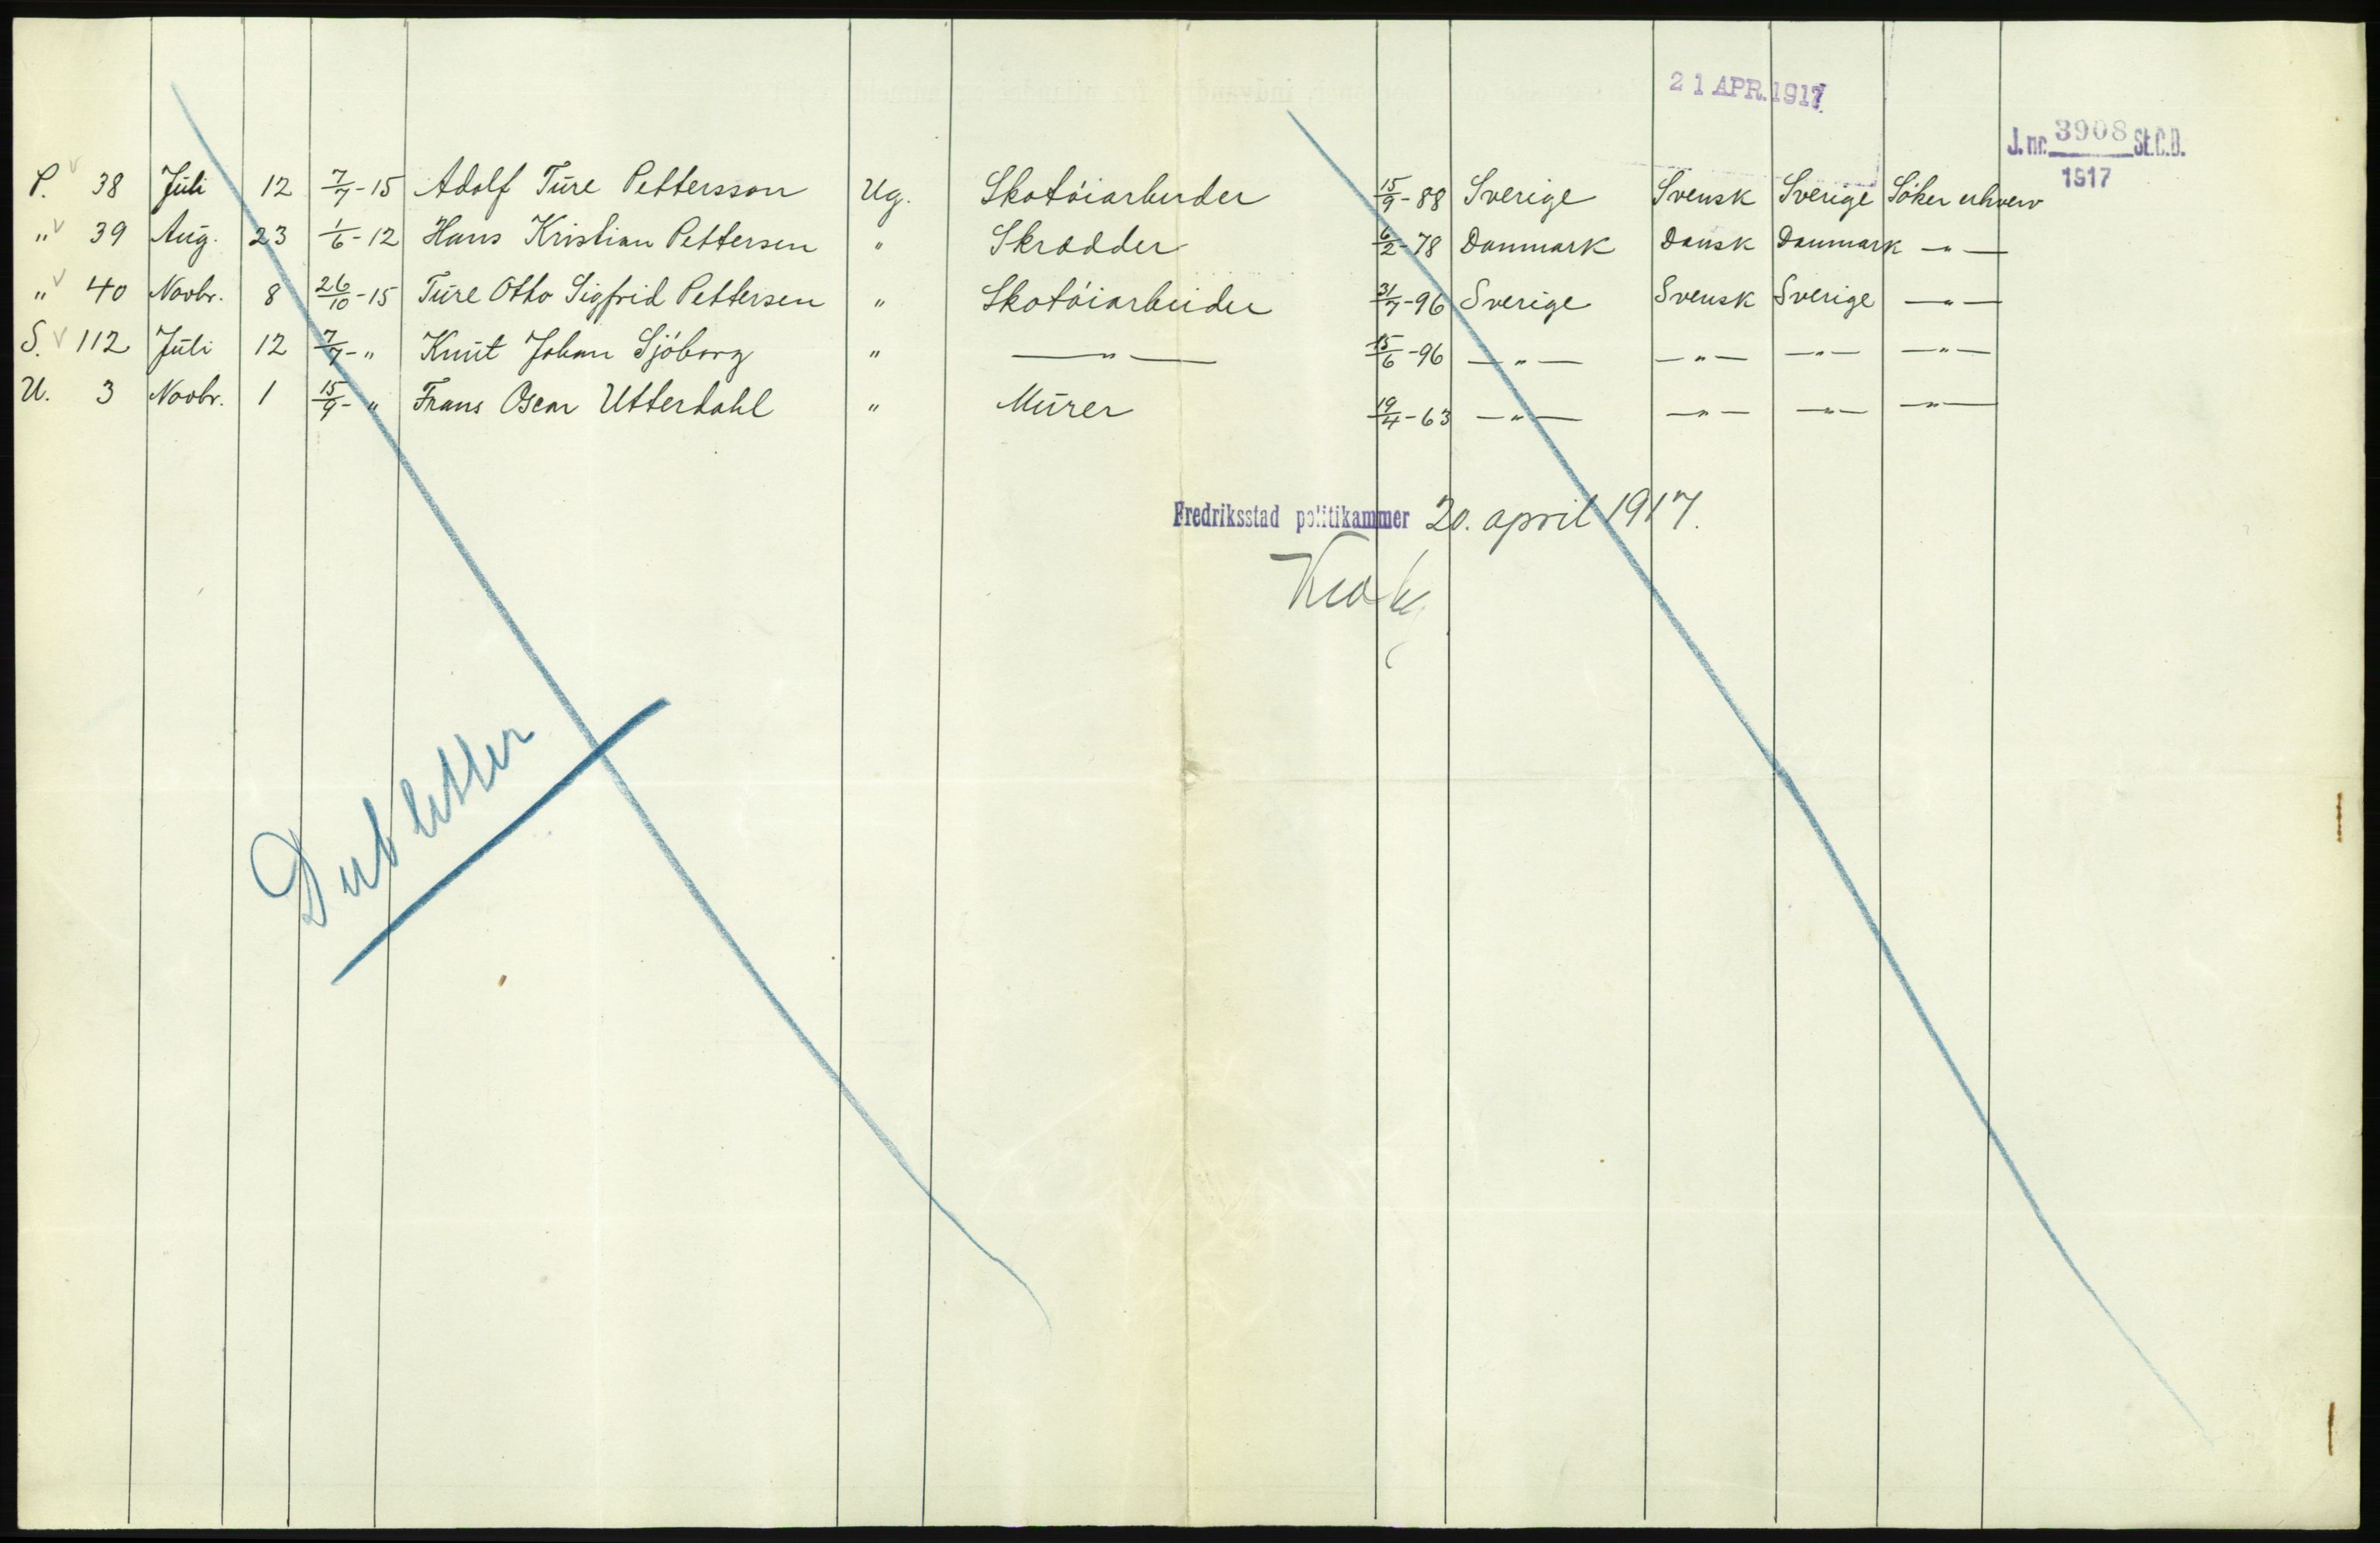 21 APR. 1917
J. nr. 3908 St.C.B.
1917
P. v 38 Juli 12 7/7-15 Adolf Ture Pettersson Ug. Skotöiarbeider 15/9-88 Sverige Svensk Sverige Söker erhverv
" v 39 Aug. 23 1/6-12 Hans Kristian Pettersen " Skrædder 6/2-78 Danmark Dansk Danmark —"—
" v 40 Novbr. 8 26/10-15 Ture Otto Sigfrid Pettersen " Skotöiarbeider 31/7-96 Sverige Svensk Sverige —"—
S. v 112 Juli 12 7/7-" Knut Johan Sjöborg " —"— 15/6-96 —"— —"— —"— —"—
U. 3 Novbr. 1 15/9-" Frans Oscar Utterdahl " Murer 19/4-63 —"— —"— —"— —"—
Fredriksstad politikammer 20. april 1917.
Dubletter